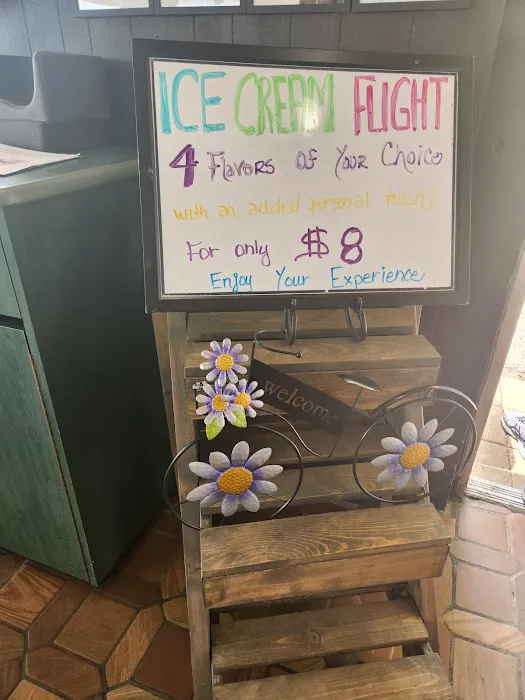 ICE CREAM FLIGHT
4 Flavors of Your Choice
with an added personal touch:
For only $8
Enjoy Your Experience
welcome